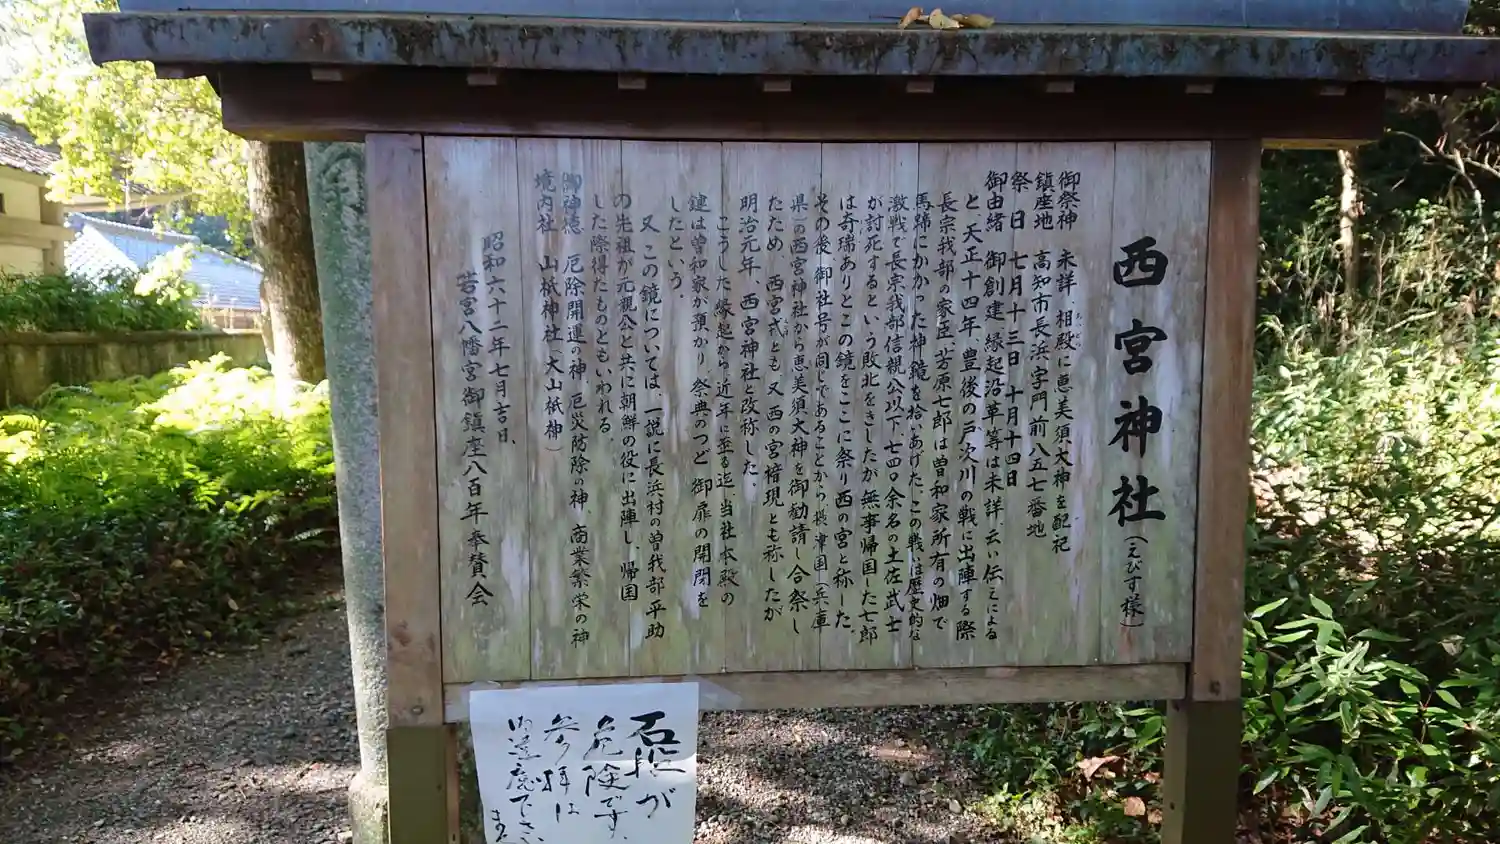 西宮神社(えびす様)
御祭神 未詳、相殿に恵美須大神を配祀
鎮座地 高知市長浜字門前八五七番地
祭日 七月十三日 十月十四日
御由緒 御創建、縁起沿革等は未詳、云い伝えによる
と、天正十四年、豊後の戸次川の戦に出陣する際
長宗我部の家臣、芳原七郎は曽和家所有の畑で
馬蹄にかかった神鏡を拾いあげた、この戦は歴史的な
激戦で長宗我部信親公以下、七四〇余名の土佐武士
が討死するという敗北をきしたが無事帰国した七郎
は奇瑞ありとこの鏡をここに祭り西の宮と称した。
その後、御社号が同じであることから、摂津国(兵庫
県)の西宮神社から恵美須大神を御勧請し合祭し
たため、西宮戎とも又西の宮権現とも称したが
明治元年、西宮神社と改称した。
こうした縁起から、近年に至る迄、当社本殿の
鍵は曽和家が預かり、祭典のつど御扉の開閉を
したという。
又この鏡については、一説に長浜村の曽我部平助
の先祖が元親公と共に朝鮮の役に出陣し、帰国
した際得たものともいわれる。
御神徳 厄除開運の神、厄災防除の神、商業繁栄の神
境内社 山祇神社(大山祇神)
昭和六十二年七月吉日、
若宮八幡宮御鎮座八百年奉賛会
石段が
危険です、
参拝は
御遠慮下さい
ませ